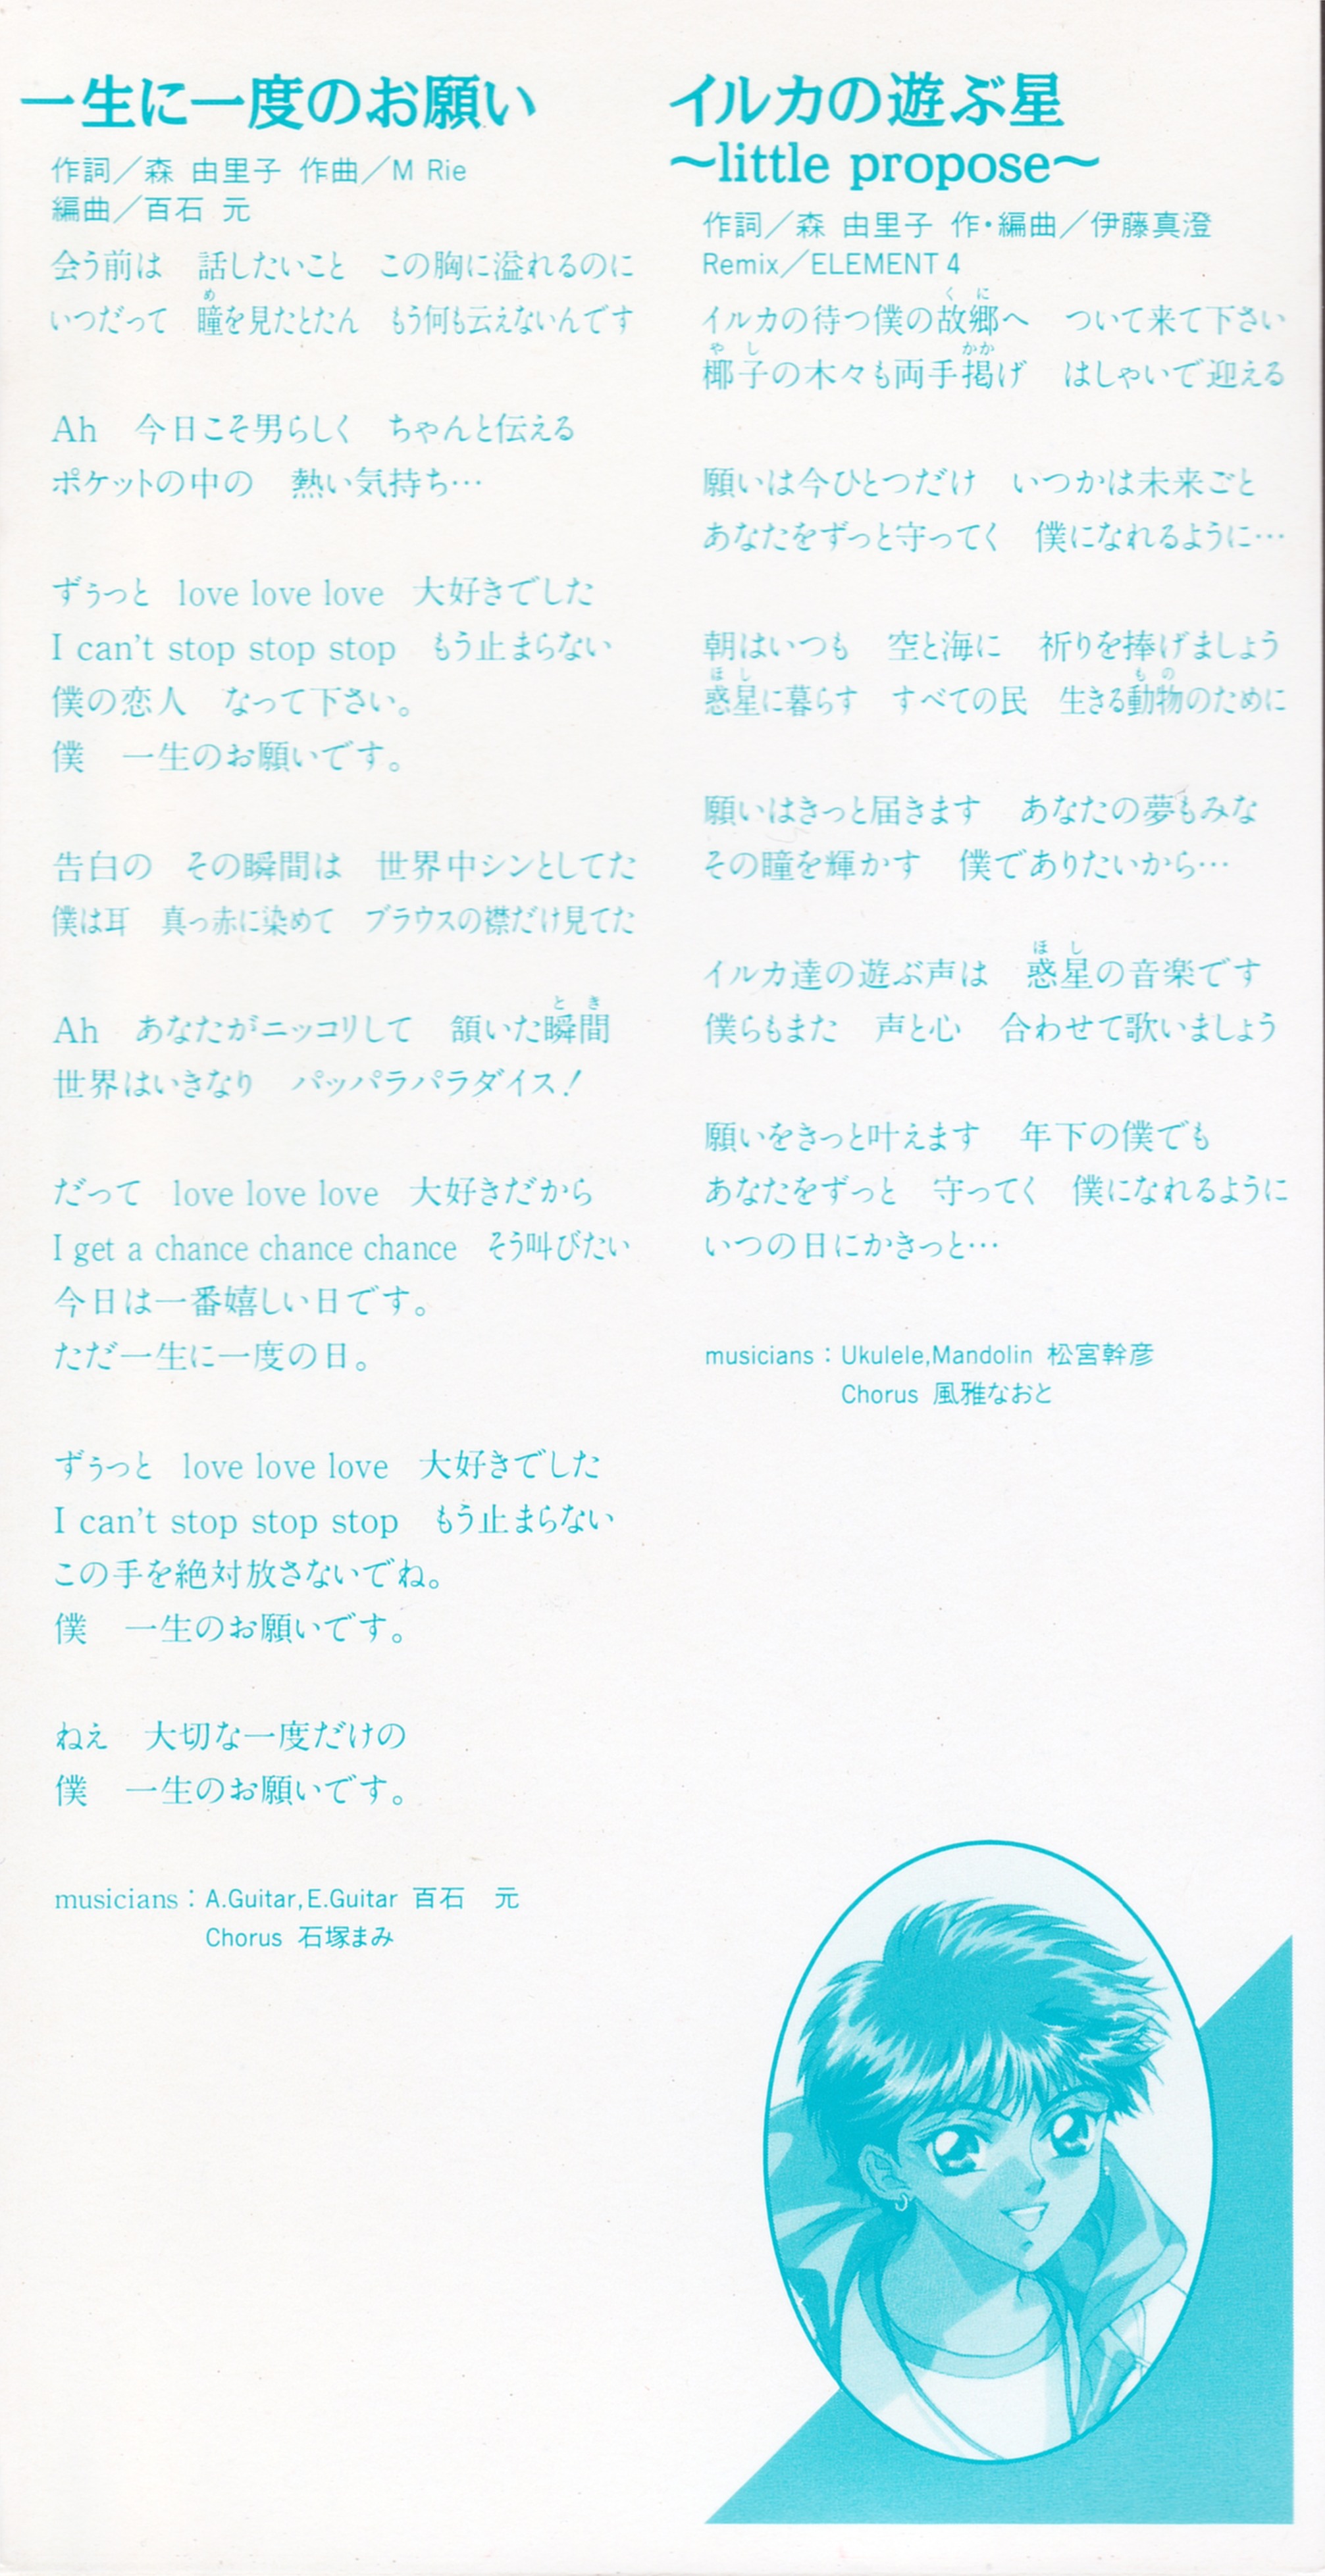 一生に一度のお願い
作詞／森 由里子 作曲／M Rie
編曲／百石 元
会う前は　話したいこと　この胸に溢れるのに
め
いつだって　瞳を見たとたん　もう何も云えないんです
Ah　今日こそ男らしく　ちゃんと伝える
ポケットの中の　熱い気持ち…
ずぅっと　love love love　大好きでした
I can't stop stop stop　もう止まらない
僕の恋人　なって下さい。
僕　一生のお願いです。
告白の　その瞬間は　世界中シンとしてた
僕は耳　真っ赤に染めて　ブラウスの襟だけ見てた
とき
Ah　あなたがニッコリして　頷いた瞬間
世界はいきなり　パッパラパラダイス！
だって　love love love　大好きだから
I get a chance chance chance　そう叫びたい
今日は一番嬉しい日です。
ただ一生に一度の日。
ずぅっと　love love love　大好きでした
I can't stop stop stop　もう止まらない
この手を絶対放さないでね。
僕　一生のお願いです。
ねえ　大切な一度だけの
僕　一生のお願いです。
musicians：A.Guitar,E.Guitar 百石　元
Chorus 石塚まみ
イルカの遊ぶ星
〜little propose〜
作詞／森 由里子 作・編曲／伊藤真澄
Remix／ELEMENT 4
くに
イルカの待つ僕の故郷へ　ついて来て下さい
やし　かか
椰子の木々も両手掲げ　はしゃいで迎える
願いは今ひとつだけ　いつかは未来ごと
あなたをずっと守ってく　僕になれるように…
朝はいつも　空と海に　祈りを捧げましょう
ほし　もの
惑星に暮らす　すべての民　生きる動物のために
願いはきっと届きます　あなたの夢もみな
その瞳を輝かす　僕でありたいから…
ほし
イルカ達の遊ぶ声は　惑星の音楽です
僕らもまた　声と心　合わせて歌いましょう
願いをきっと叶えます　年下の僕でも
あなたをずっと　守ってく　僕になれるように
いつの日にかきっと…
musicians：Ukulele,Mandolin 松宮幹彦
Chorus 風雅なおと